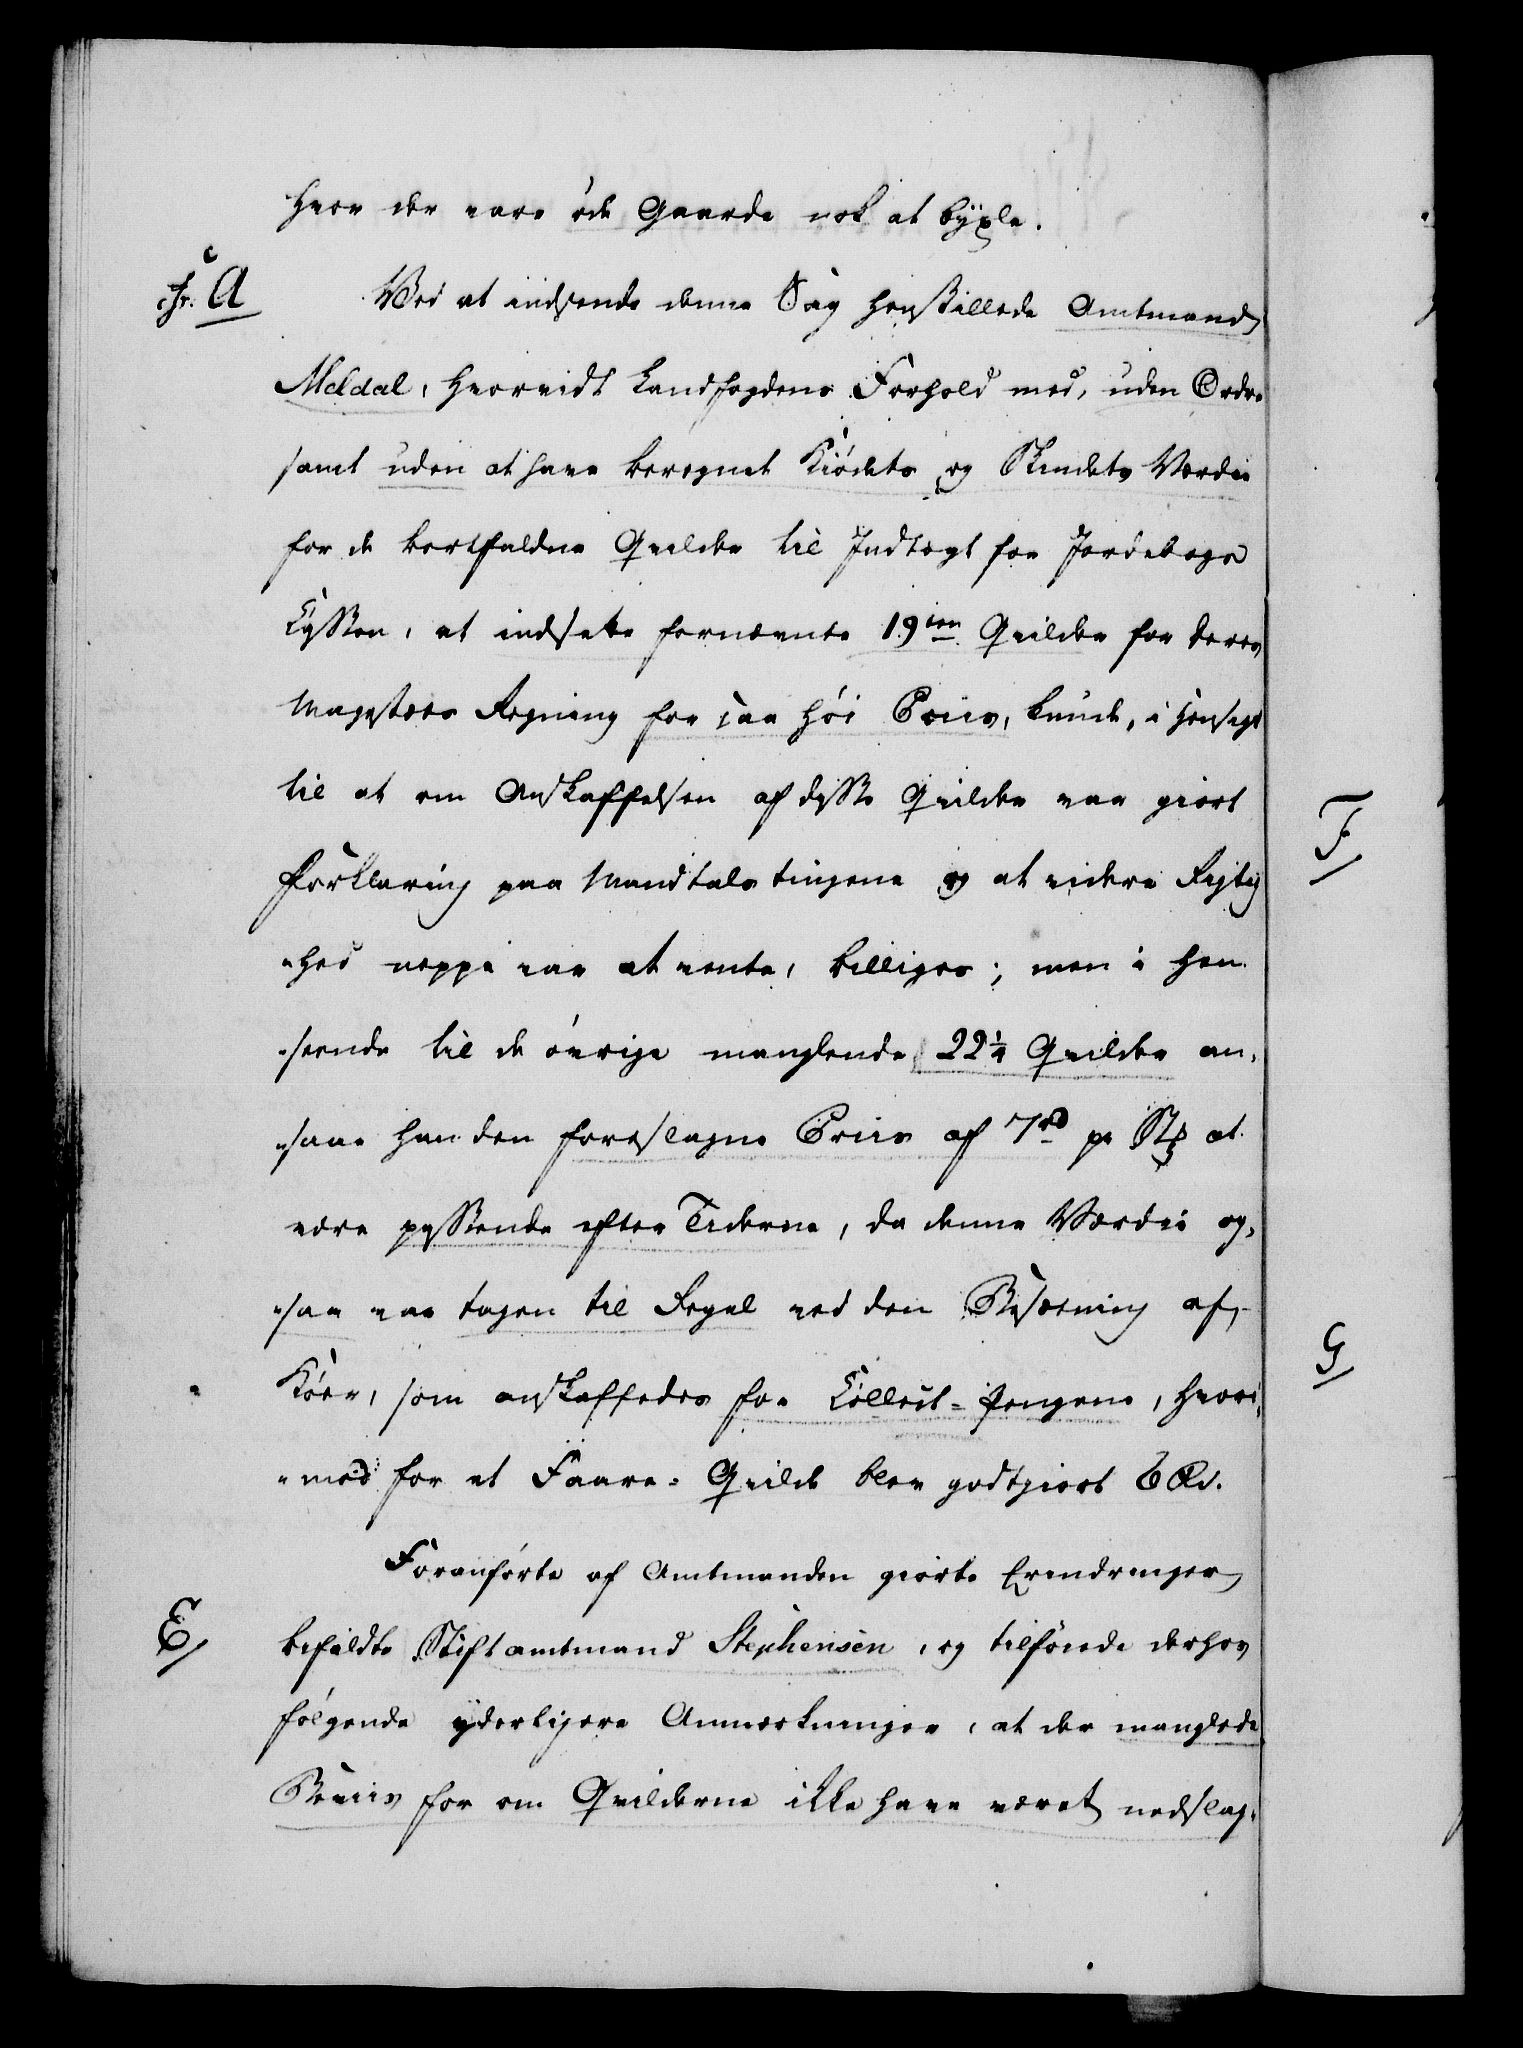 hvor der vare øde Gaarde nok at byxle.
cfr. A
Ved at indsende denne Sag henstillede Amtmand
Meldal, hvorvidt Landfogdens Forhold med, uden Ordre
samt uden at have beregnet Kiödets og Skindets Værdie
for de bortfaldne Qvilder til Indtægt for Jordebogs
Cassen, at indsætte fornævnte 19ten Qvilder for deres
Majestæts Regning for saa höi Priis, kunde, i Hensigt
til at om Anskaffelsen af disse Qvilder var giort
Forklaring paa Mandtals tingene og at videre Rigtig
-hed neppe var at vente, billiges; men i Hen
-seende til de övrige manglende 22¼ Qvilder an-
-saae han den foreslagne Priis af 7rd pr Stk at
være passende efter Tiderne, da denne Værdie og-
-saa var tagen til Regel ved den Besætning af
Köer, som anskaffedes for Collect-Pengene, hvori-
-mod for et Faare-Qvilde blev godtgiort 6 Rd.
Foranförte af Amtmanden giorte Erindringer
E/
bifaldte Stiftamtmand Stephensen, og tilföiede derhos
fölgende yderligere Anmærkninger, at der manglede
Beviis for om Qvilderne ikke have været nedslag-
F/
G/